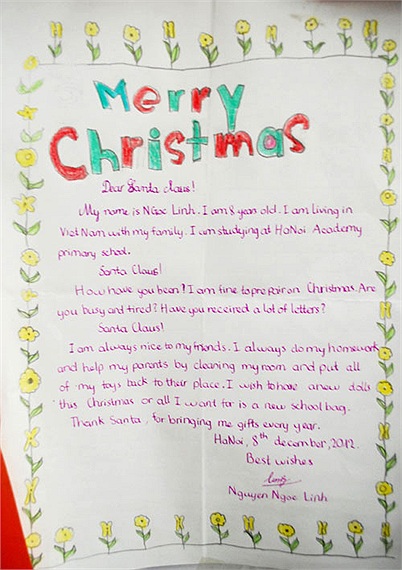 Merry
Christmas
Dear Santa Claus!
My name is Ngoc Linh. I am 8 years old. I am living in
Viet Nam with my family. I am studying at HaNoi Academy
primary school.
Santa Claus!
How have you been? I am fine to prepair on Christmas. Are
you busy and tired? Have you received a lot of letters?
Santa Claus!
I am always nice to my friends. I always do my homework
and help my parents by cleaning my room and put all
of my toys back to their place. I wish to have a new dolls
this Christmas or all I want for is a new school bag.
Thank Santa, for bringing me gifts every year.
HaNoi, 8th december, 2012.
Best wishes
Linh
Nguyen Ngoc Linh